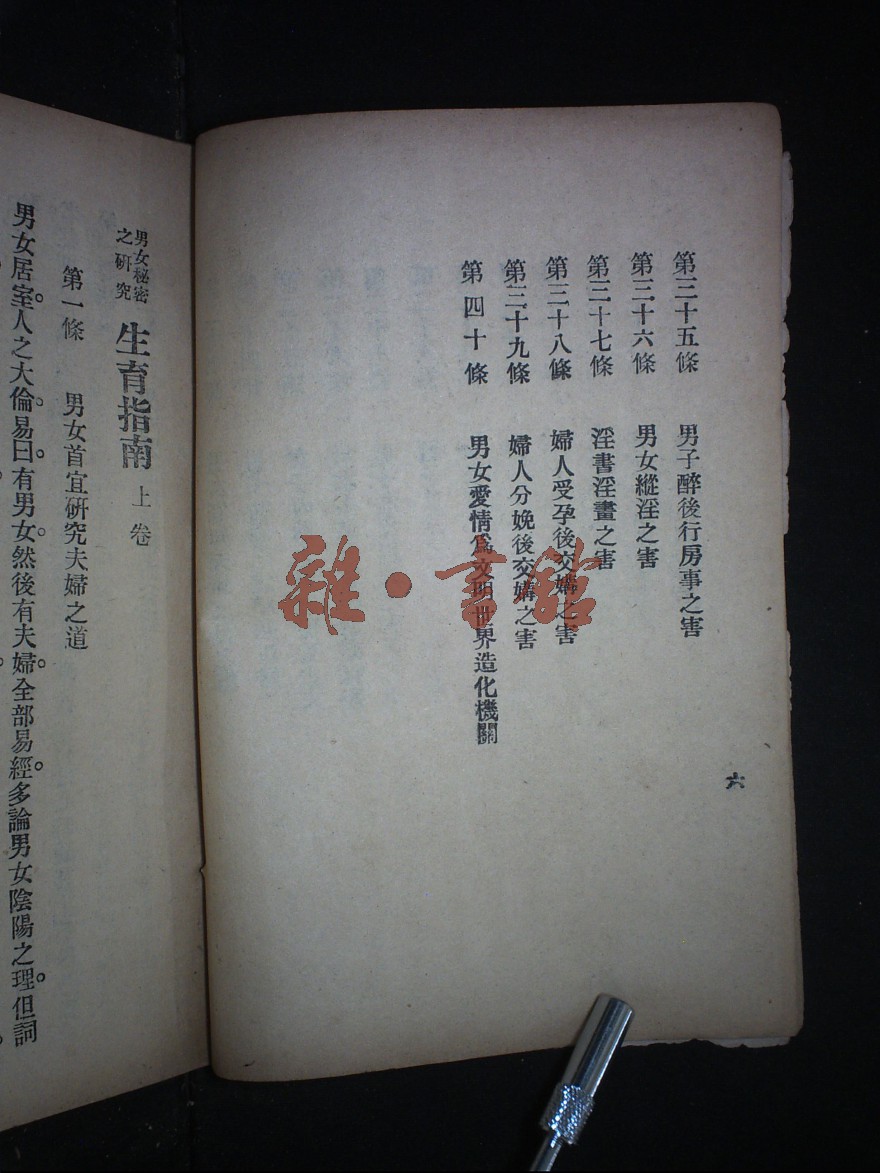 第三十五條　男子醉後行房事之害
第三十六條　男女縱淫之害
第三十七條　淫書淫畫之害
第三十八條　婦人受孕後交媾之害
第三十九條　婦人分娩後交媾之害
第四十條　男女愛情爲文明世界造化機關
六
雜·書館
男女秘密之硏究　生育指南　上卷
第一條　男女首宜硏究夫婦之道
男女居室。人之大倫。易曰。有男女。然後有夫婦。全部易經。多論男女陰陽之理。但詞